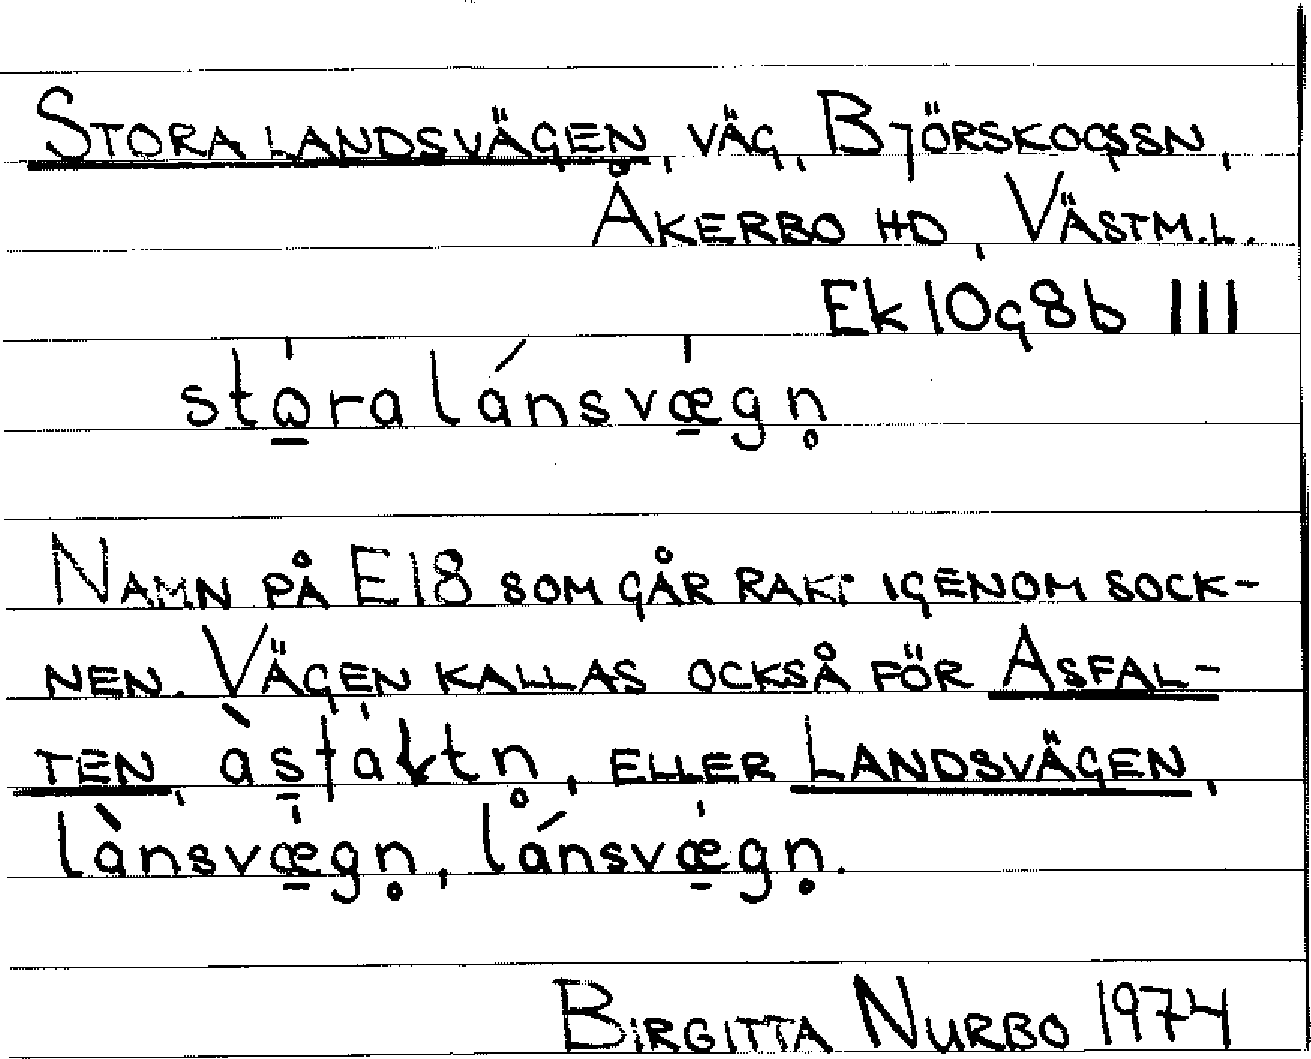 STORA LANDSVÄGEN, VÄG, BJÖRSKOGSSN,
ÅKERBO HD, VÄSTM.L.
Ek 10g8b III
stɷ̠̍ra lánsvæ̠̍gn̥
NAMN PÅ E18 SOM GÅR RAKT IGENOM SOCK-
NEN. VÄGEN KALLAS OCKSÅ FÖR ASFAL-
TEN, às̠fa̍ɫtn̥, ELLER LANDSVÄGEN,
lànsvæ̠̍gn̥, lánsvæ̠̍gn̥.
BIRGITTA NURBO 1974